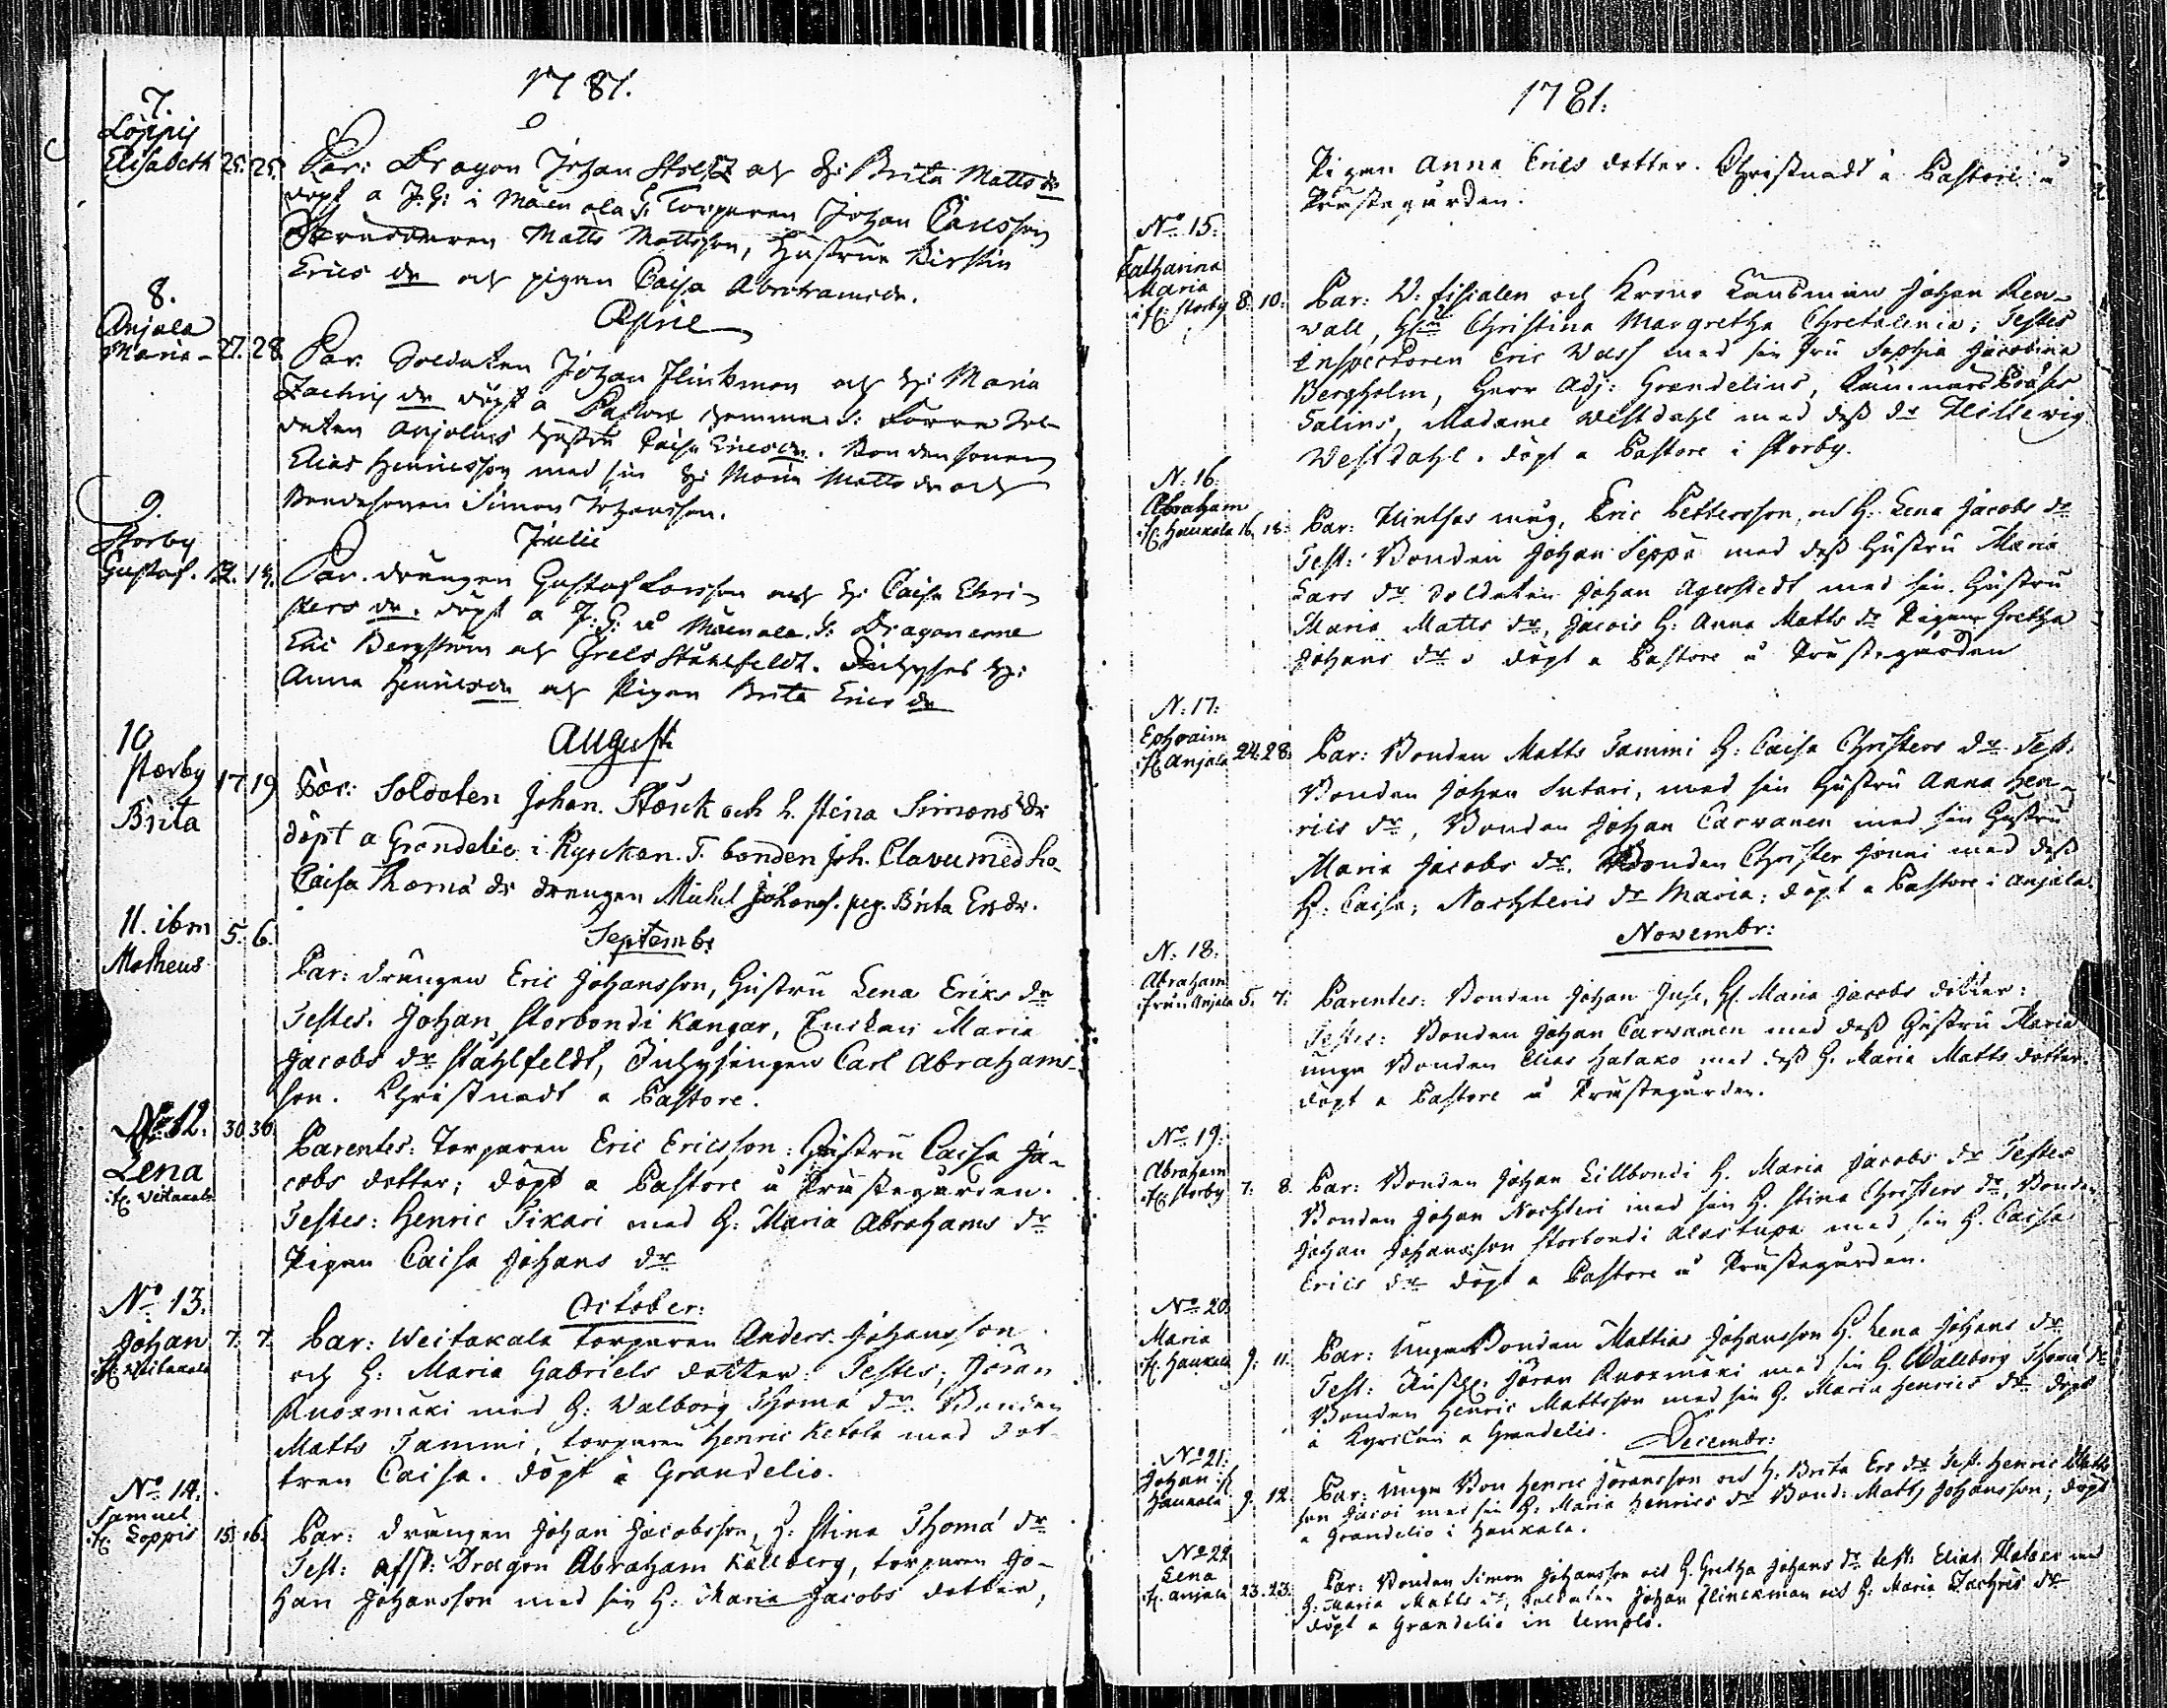 1781.
7.
Loppis
Elisabeth 25. 25.
Par: Dragon Johan Stoltz och H: Brita Matts dr
döpt a J. G: i Mämälä T: Torparen Johan Carlsson
Matts Mattsson, Hustrun Kirstin
Erics dr och pigan Caisa Abrahamsdr.
April
8.
Anjala
Maria - 27. 28
Par. Soldaten Johan Flinkman och H: Maria
Zachris dr döpt a Pastore hemma T: Förre Sol-
daten Anjelins hustru Caisa Ericsdr. Bondesonen
Elias Henricsson med sin H: Maria Matts dr och
Bondesonen Simon Johansson.
Julii
9.
Storby
Gustaf. 12. 14.
Par. drängen Gustaf Larsson och H: Caisa Chri-
sters dr. döpt a J: G: i Mämälä. T: Dragonerne
Eric Bergström och Grels Ståhlfeldt. Inhyses H:
Anna Henricsdr och Pigan Brita Erics dr
Augusti
10
Storby 17. 19
Brita
Par: Soldaten Johan. Störck och h. Stina Simons dr
döpt a Grandelio i Kyrckan. T. bonden Joh. Clavu med ho.
Caisa Thomæ dr drengen Michel Johans. pig. Brita Ersdr.
Septembr
11. ibm 5. 6.
Matheus
Par: drängen Eric Johansson, Hustru Lena Eriks dr
Testes. Johan Storbondi Kangar, Enckan Maria
Jacobs dr Ståhlfeldt, Inhysingen Carl Abrahams-
son. Christnadt a Pastore.
No 12. 30. 30
Lena
fr. Weitakala
Parentes: Torparen Eric Ericsson: Hustru Caisa Ja-
cobs dotter; döpt a Pastore i Prästegården.
Testes: Henric Tikari med H: Maria Abrahams dr
Pigan Caisa Johans dr
October:
No 13.
Johan 7. 7.
fr. Weitakala
Par: Weitakala torparen Anders Johansson
och H: Maria Gabriels dotter: Testes; Jöran
Ruoxmäki med H: Walborg Thomæ dr. Bonden
Matts Tammi, torparen Henric Ketola med dot-
tren Caisa. döpt a Grandelio.
No 14.
Samuel
fr. Loppis 15. 16.
Par: drängen Johan Jacobsson, H: Stina Thomæ dr
Test: afsk: Dragon Abraham Källberg, torparen Jo-
han Johansson med sin H: Maria Jacobs dotter,
1781:
Pigan Anna Erics dotter. Christnadt a Pastore i
Prästegården.
No 15.
Catharina
Maria
fr. Storby 8. 10.
Par: V. fiscalen och Krono Länsman Johan Ren-
wall, H: Christina Margretha Chretalenia; Testes
Inspectoren Eric Wass med sin Fru Sophia Jacobina
Bergholm, Herr Adj: Grandelius,
Salins, Madame Westdahl med dess dr Hedewig
Westdahl. döpt a Pastore i Storby.
N. 16.
Abraham
fr. Haukala 16. 18.
Par: Eric Pettersson, och H. Lena Jacobs dr
Test: Bonden Johan Seppä med dess Hustru Maria
Lars dr Soldaten Johan Agerstedt med sin Hustru
Maria Matts dr, Jacois H: Anna Matts dr Pigan Gretha
Johans dr. döpt a Pastore i Prästegården
N. 17:
Ephraim
fr. Anjala 24. 28.
Par: Bonden Matts Tammi H: Caisa Christers dr Test.
Bonden Johan Sutari, med sin Hustru Anna Hen-
rics dr, Bonden Johan Carvanen med sin Hustru
Maria Jacobs dr. Bonden Christer Jonni med dess
H: Caisa; Nachteris dr Maria; döpt a Pastore i Anjala.
Novembr:
N. 18.
Abraham
från Anjala 5. 7.
Parentes: Bonden Johan Juse, H: Maria Jacobs dotter:
Testes: Bonden Johan Carvanen med dess Hustru Maria
unge Bonden Elias Hatako med dess H. Maria Matts dotter.
döpt a Pastore i Prästegården.
No 19:
Abraham
fr. Storby 7. 8.
Par: Bonden Johan Lillbondi H. Maria Jacobs dr Testes
Bonden Johan Nachteri med sin H. Stina Christers dr, Bonden
Johan Johansson Storbondi Alastupa med sin H. Caisa
Erics dr döpt a Pastore i Prästegården.
No 20
Maria
fr. Haukala 9. 11.
Par: Unge Bonden Mattias Johansson H. Lena Johans dr
Test: Jöran Ruoxmäki med sin H. Wallborg Thomæ dr
Bonden Henric Mattsson med sin H. Maria Henrics dr döpt
i Kyrckan a Grandelio.
Decembr:
No 21:
Johan fr
Haukala 9. 12.
Par: Unge Bon Henric Jöransson och H: Brita Ers dr Test. Henric Matts
son Jacoi med sin H: Maria Henrics dr Bond: Matts Johansson; döpt
a Grandelio i Haukala.
No 22
Lena
fr. Anjala 23. 23.
Par: Bonden Simon Johansson och H. Gretha Johans dr test: Elias Hatako med
H: Maria Matts dr, Soldaten Johan Flinckman och H: Maria Zachris dr
döpt a Grandelio in templo.